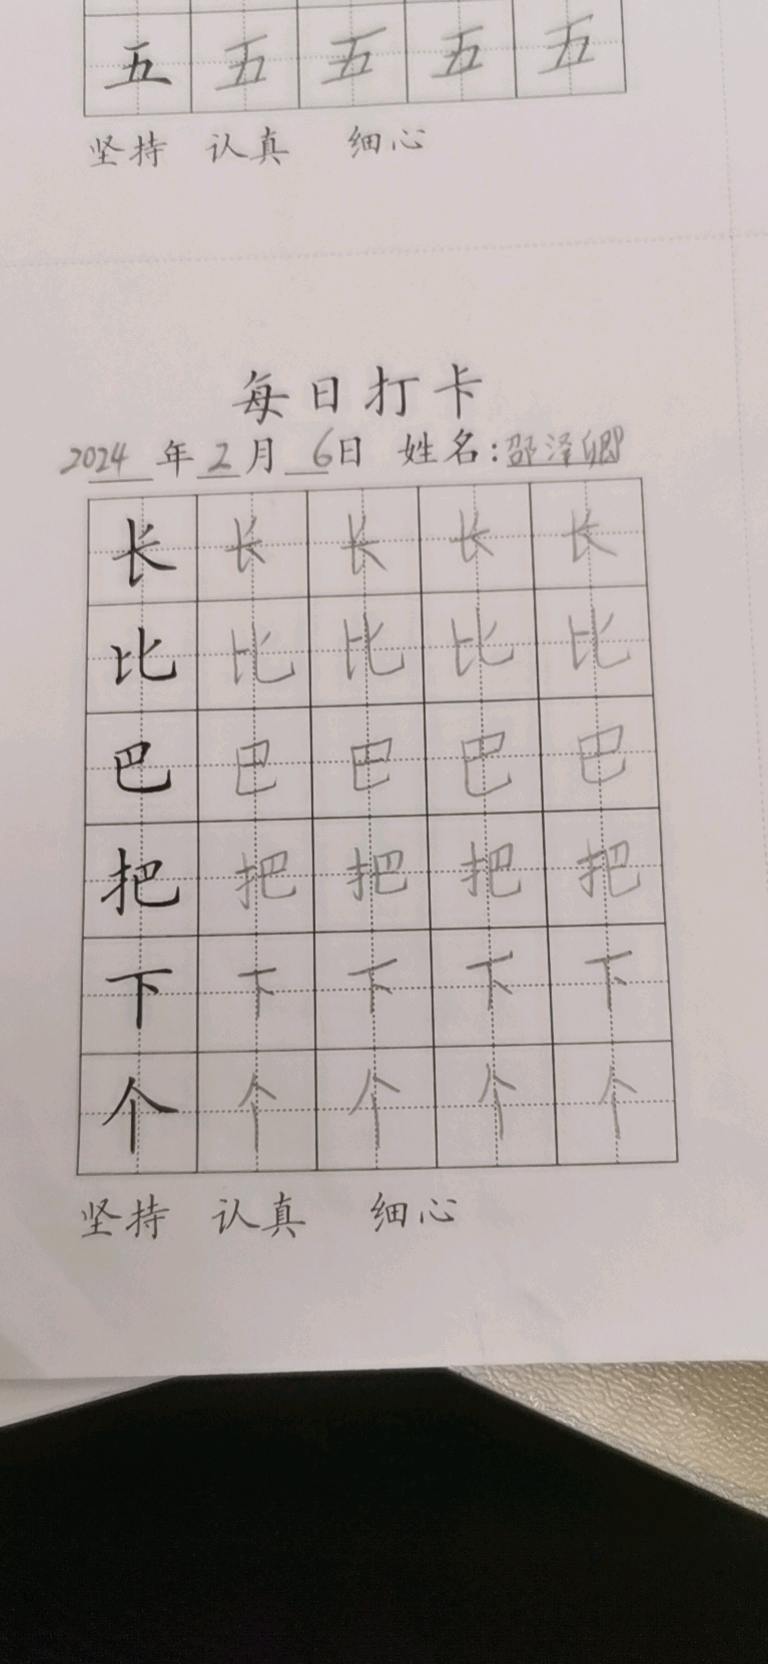 五 五 五 五 五
坚持 认真 细心
每日打卡
2024年2月6日 姓名:邵泽卿
长 长 长 长 长
比 比 比 比 比
巴 巴 巴 巴 巴
把 把 把 把 把
下 下 下 下 下
个 个 个 个 个
坚持 认真 细心